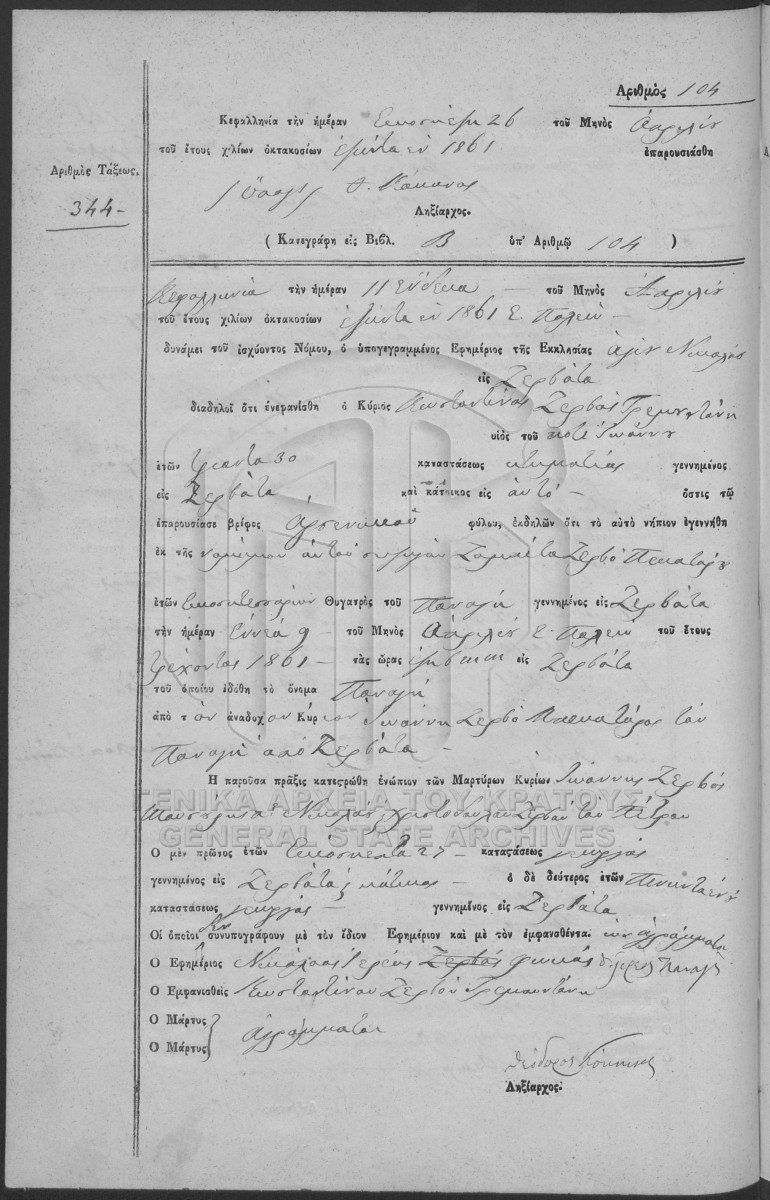 Αριθμὸς 104
Κεφαλληνία τὴν ἡμέραν 26 τοῦ Μηνὸς Ἀπριλίου
τοῦ ἔτους χιλίων ὀκτακοσίων ἑξήντα ἓν 1861 ἐπαρουσιάσθη
Ἀριθμὸς Τάξεως.
344-
Θ. Κόκκινος
Ληξίαρχος.
( Κατεγράφη εἰς Βιβλ. Β ὑπ' Ἀριθμῷ 104 )
Κεφαλληνία τὴν ἡμέραν 11 ἕνδεκα - τοῦ Μηνὸς Ἀπριλίου
τοῦ ἔτους χιλίων ὀκτακοσίων ἑξήντα ἓν 1861 Ε. Παλαιὸν -
δυνάμει τοῦ ἰσχύοντος Νόμου, ὁ ὑπογεγραμμένος Ἐφημέριος τῆς Ἐκκλησίας ἁγίου Νικολάου
εἰς Ζερβάτα
διαδηλοῖ ὅτι ἐνεφανίσθη ὁ Κύριος Κωσταντῖνος Ζερβὸς
υἱὸς τοῦ ποτὲ Ἰωάννου
ἐτῶν τριάντα 30 καταστάσεως κτηματίας γεννημένος
εἰς Ζερβάτα καὶ κάτοικος εἰς αὐτὸ - ὅστις τῷ
ἐπαρουσίασε βρέφος ἀρσενικοῦ φύλου, ἐκδηλῶν ὅτι τὸ αὐτὸ νήπιον ἐγεννήθη
ἐκ τῆς νομίμου αὐτοῦ συζύγου Ζερβὸ
ἐτῶν εἰκοσιτεσσάρων Θυγατρὸς τοῦ Παναγῆ γεννημένος εἰς Ζερβάτα
τὴν ἡμέραν ἐννέα 9 - τοῦ Μηνὸς Ἀπριλίου Ε. Παλαιὸν τοῦ ἔτους
τρέχοντος 1861 - τὰς ὥρας εἰς Ζερβάτα
τοῦ ὁποίου ἐδόθη τὸ ὄνομα Παναγῆ
ἀπὸ τὸν ἀνάδοχον Κύριον Ἰωάννη Ζερβὸ τοῦ
Παναγῆ ἀπὸ Ζερβάτα -
Η παροῦσα πρᾶξις κατεστρώθη ἐνώπιον τῶν Μαρτύρων Κυρίων Ἰωάννης Ζερβὸς
Νικολάου Χριστόδουλου Ζερβοῦ τοῦ Πέτρου
ΓΕΝΙΚΑ ΑΡΧΕΙΑ ΤΟΥ ΚΡΑΤΟΥΣ
GENERAL STATE ARCHIVES
Ο μὲν πρῶτος ἐτῶν εἰκοσιεπτὰ 27 - καταστάσεως γεωργὸς
γεννημένος εἰς Ζερβάτα κάτοικος - ὁ δὲ δεύτερος ἐτῶν
καταστάσεως γεωργὸς - γεννημένος εἰς Ζερβάτα
Οἱ ὁποῖοι δὲν συνυπογράφουν μὲ τὸν ἴδιον Ἐφημέριον καὶ μὲ τὸν ἐμφανισθέντα. ὡς ἀγράμματοι
Ο Ἐφημέριος Νικόλαος Ἱερεὺς Ζερβὸς
Ο Ἐμφανισθεὶς Κωσταντῖνος Ζερβὸς
Ο Μάρτυς
Ο Μάρτυς ἀγράμματοι
Θεόδωρος Κόκκινος
Ληξίαρχος.